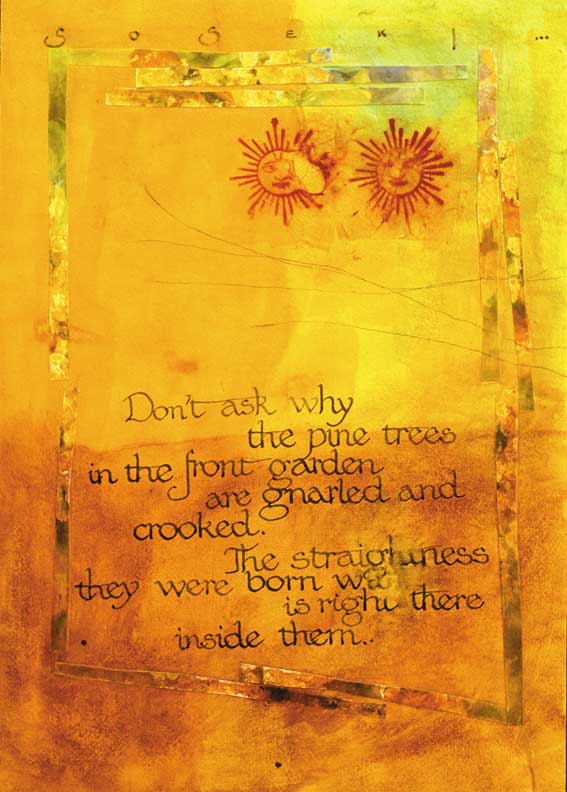 SOSEKI...
Don't ask why
the pine trees
in the front garden
are gnarled and
crooked.
The straightness
they were born
is right there
inside them..